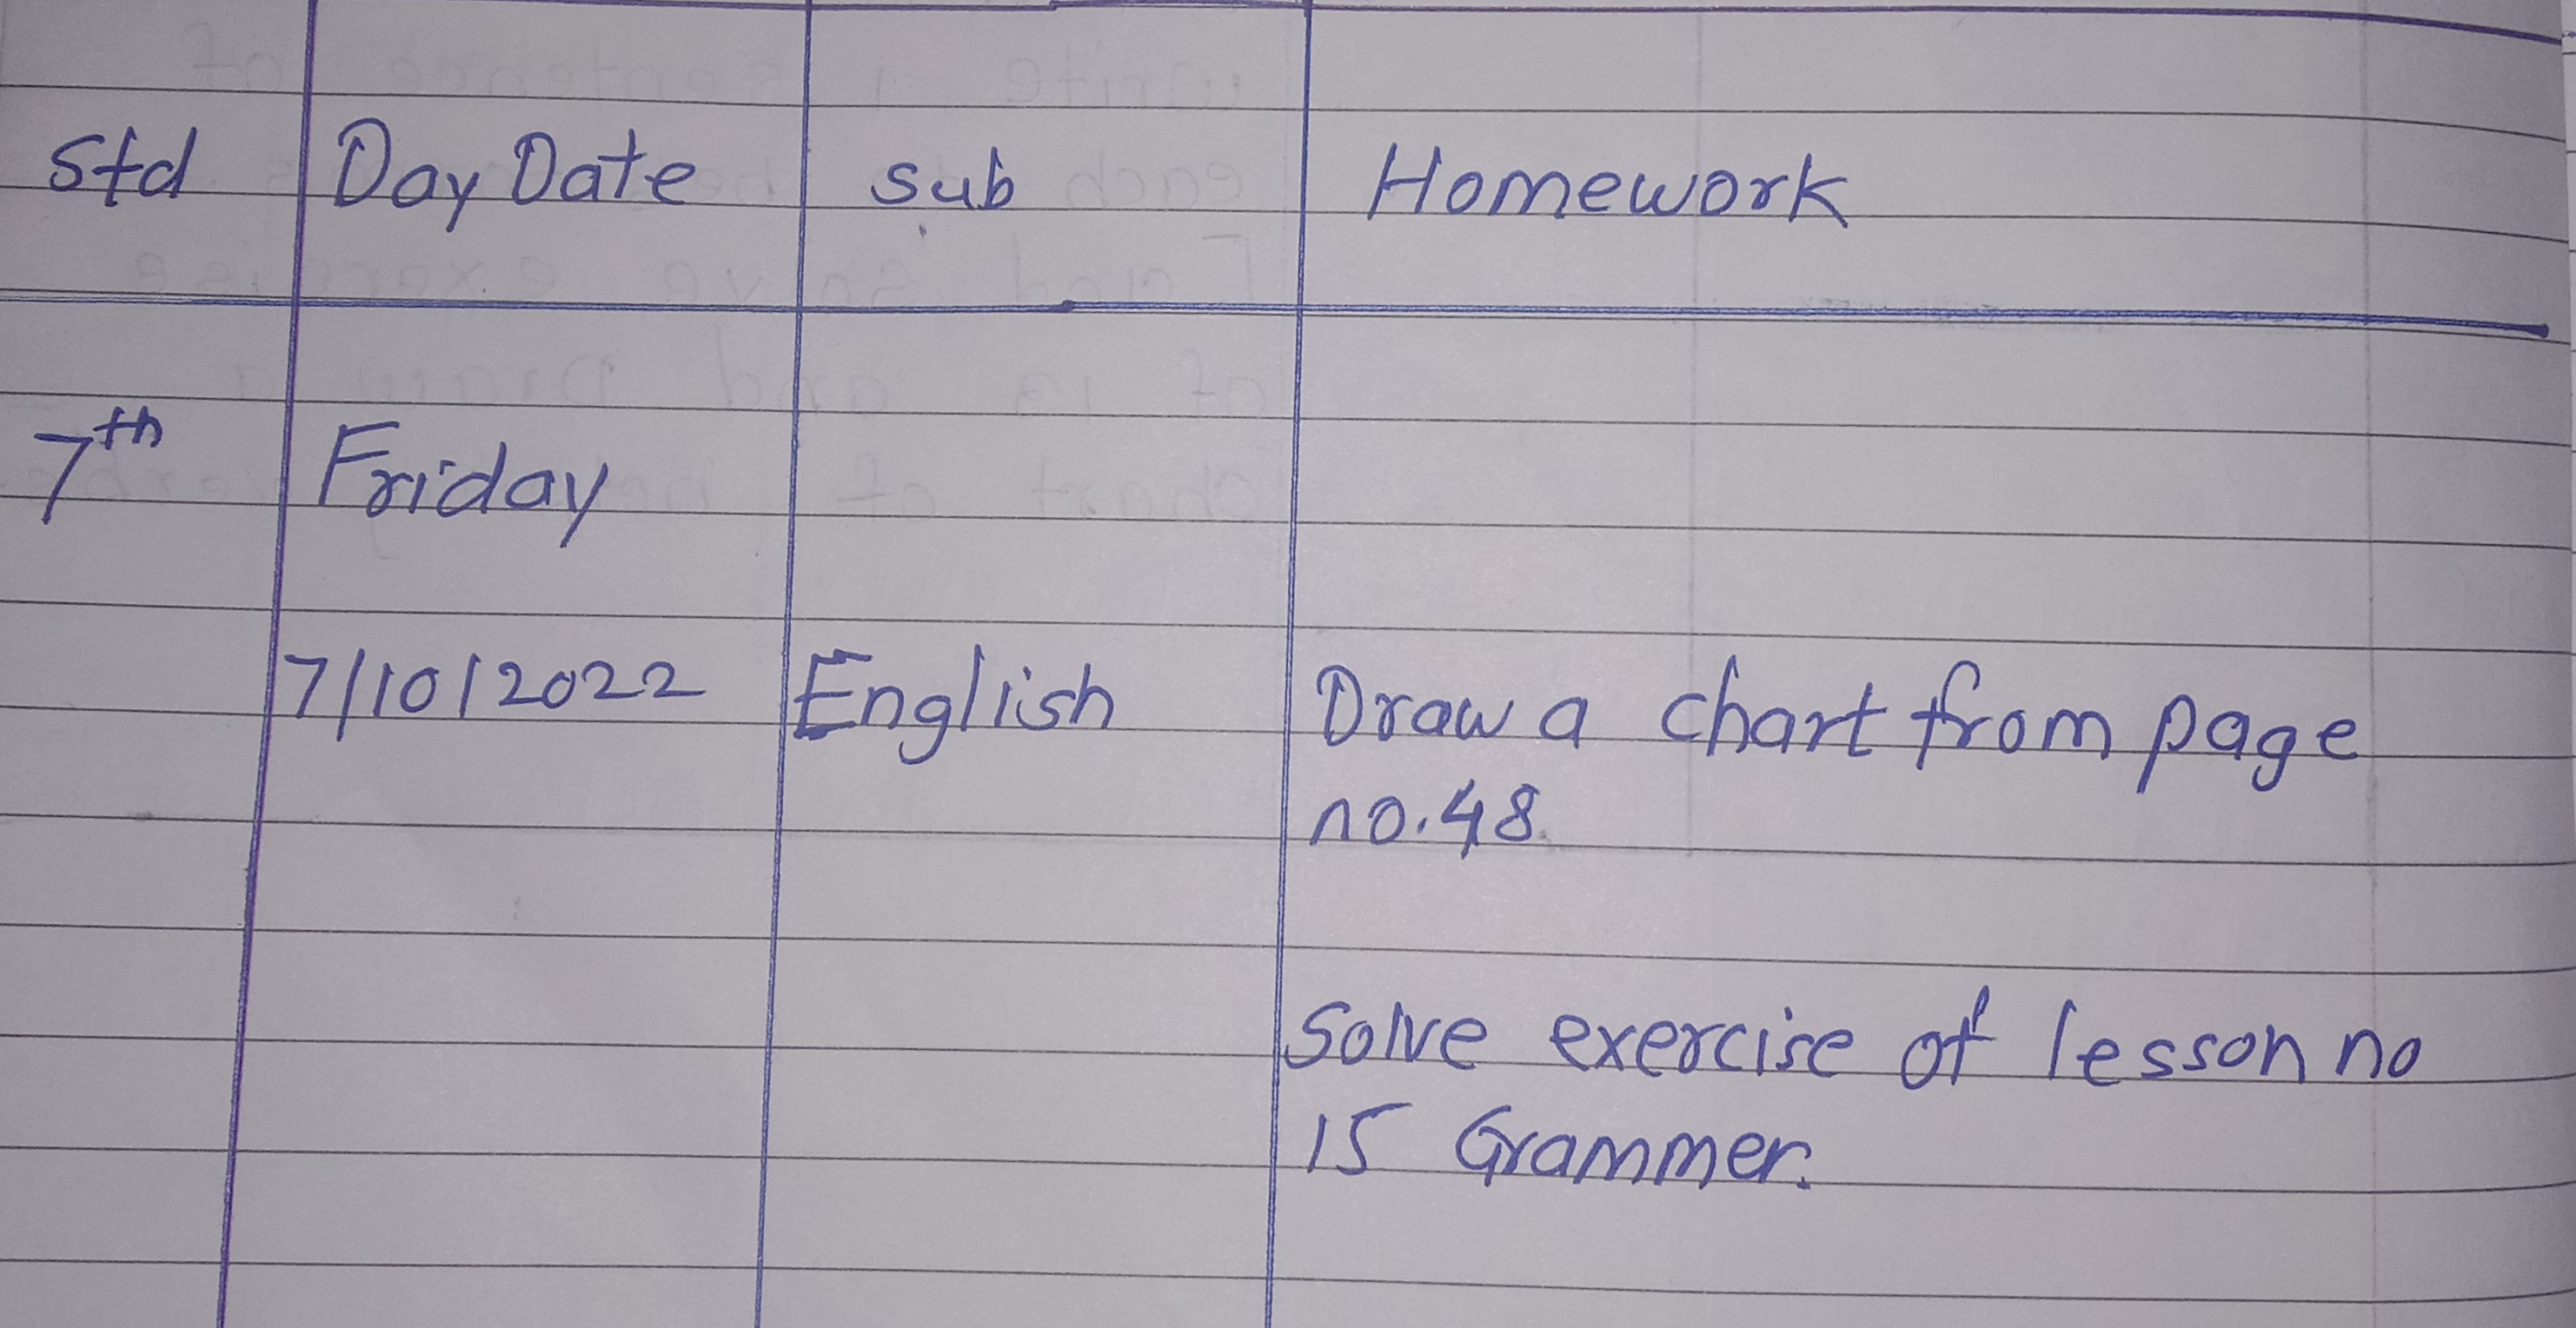 Std Day Date sub Homework
7th Friday
7/10/2022 English Draw a chart from page
no.48.
Solve exercise of lesson no
15 Grammer.